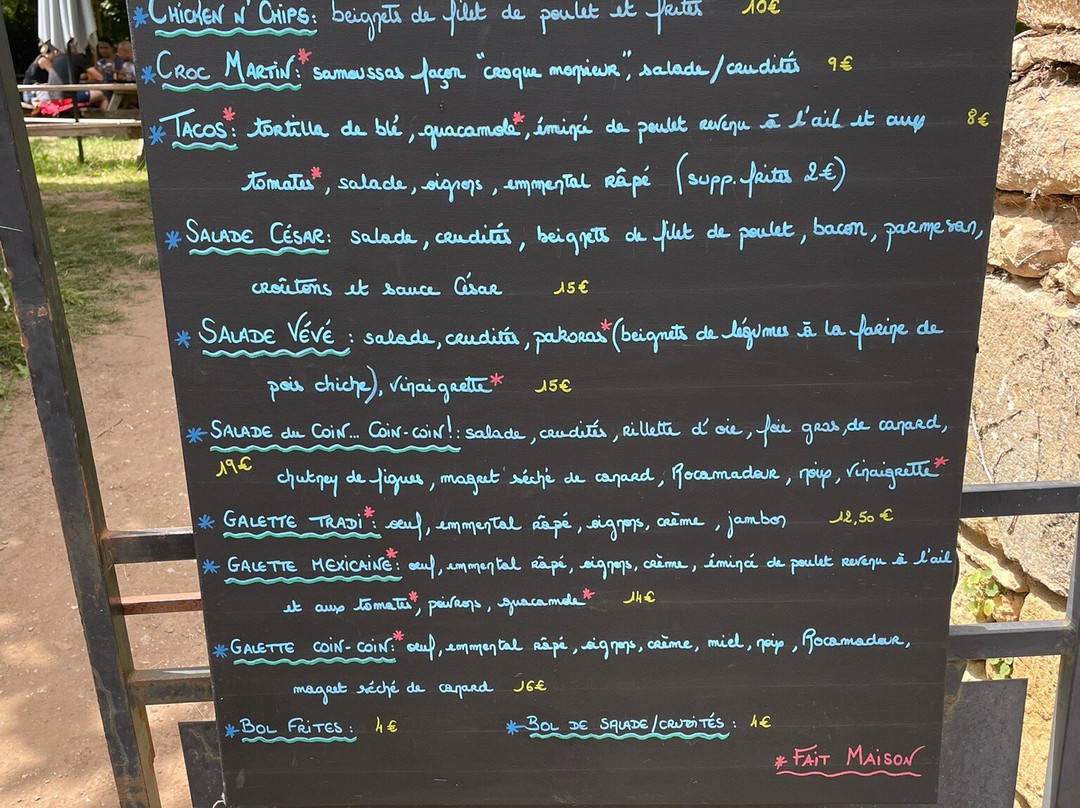 *CHICKEN N' CHIPS: beignets de filet de poulet et frites 10€
*CROC MARTIN:* samoussas façon "croque monsieur", salade/crudités 9€
*TACOS*: tortilla de blé, guacamole*, émincé de poulet revenu à l'ail et aux 8€
tomates*, salade, oignons, emmental râpé (supp. frites 2€)
*SALADE CÉSAR: salade, crudités, beignets de filet de poulet, bacon, parmesan,
croûtons et sauce César 15€
*SALADE VÉVÉ: salade, crudités, pakoras*(beignets de légumes à la farine de
pois chiche), vinaigrette* 15€
*SALADE du COIN... COIN-COIN!: salade, crudités, rillette d'oie, foie gras, de canard,
19€ chutney de figues, magret séché de canard, Rocamadour, noix, vinaigrette*
*GALETTE TRADI*: oeuf, emmental râpé, oignons, crème, jambon 12,50€
*GALETTE MEXICAINE*: oeuf, emmental râpé, oignons, crème, émincé de poulet revenu à l'ail
et aux tomates*, poivrons, guacamole* 14€
*GALETTE COIN-COIN*: oeuf, emmental râpé, oignons, crème, miel, noix, Rocamadour,
magret séché de canard 16€
*BOL FRITES: 4€ *BOL DE SALADE/CRUDITÉS: 4€
*FAIT MAISON